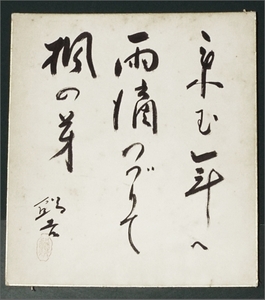 来む年へ
雨滴つづりて
楓の芽